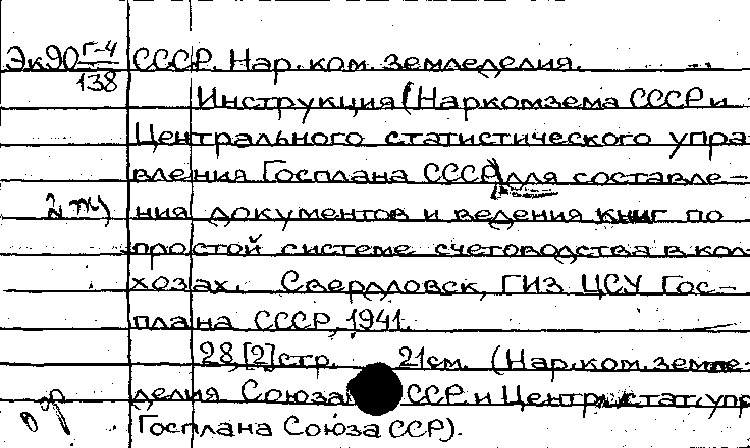 Эк90 Г-4/138 СССР. Нар. ком. земледелия.
Инструкция (Наркомзема СССР и
Центрального статистического упра
вления Госплана СССР) для составле-
ния документов и ведения книг по
простой системе счетоводства в кол
хозах. Свердловск, ГИЗ ЦСУ Гос-
плана СССР, 1941.
28,[2] стр. 21см. (Нар.ком.земле-
делия Союза ССР и Центр. стат. упр
Госплана Союза ССР).